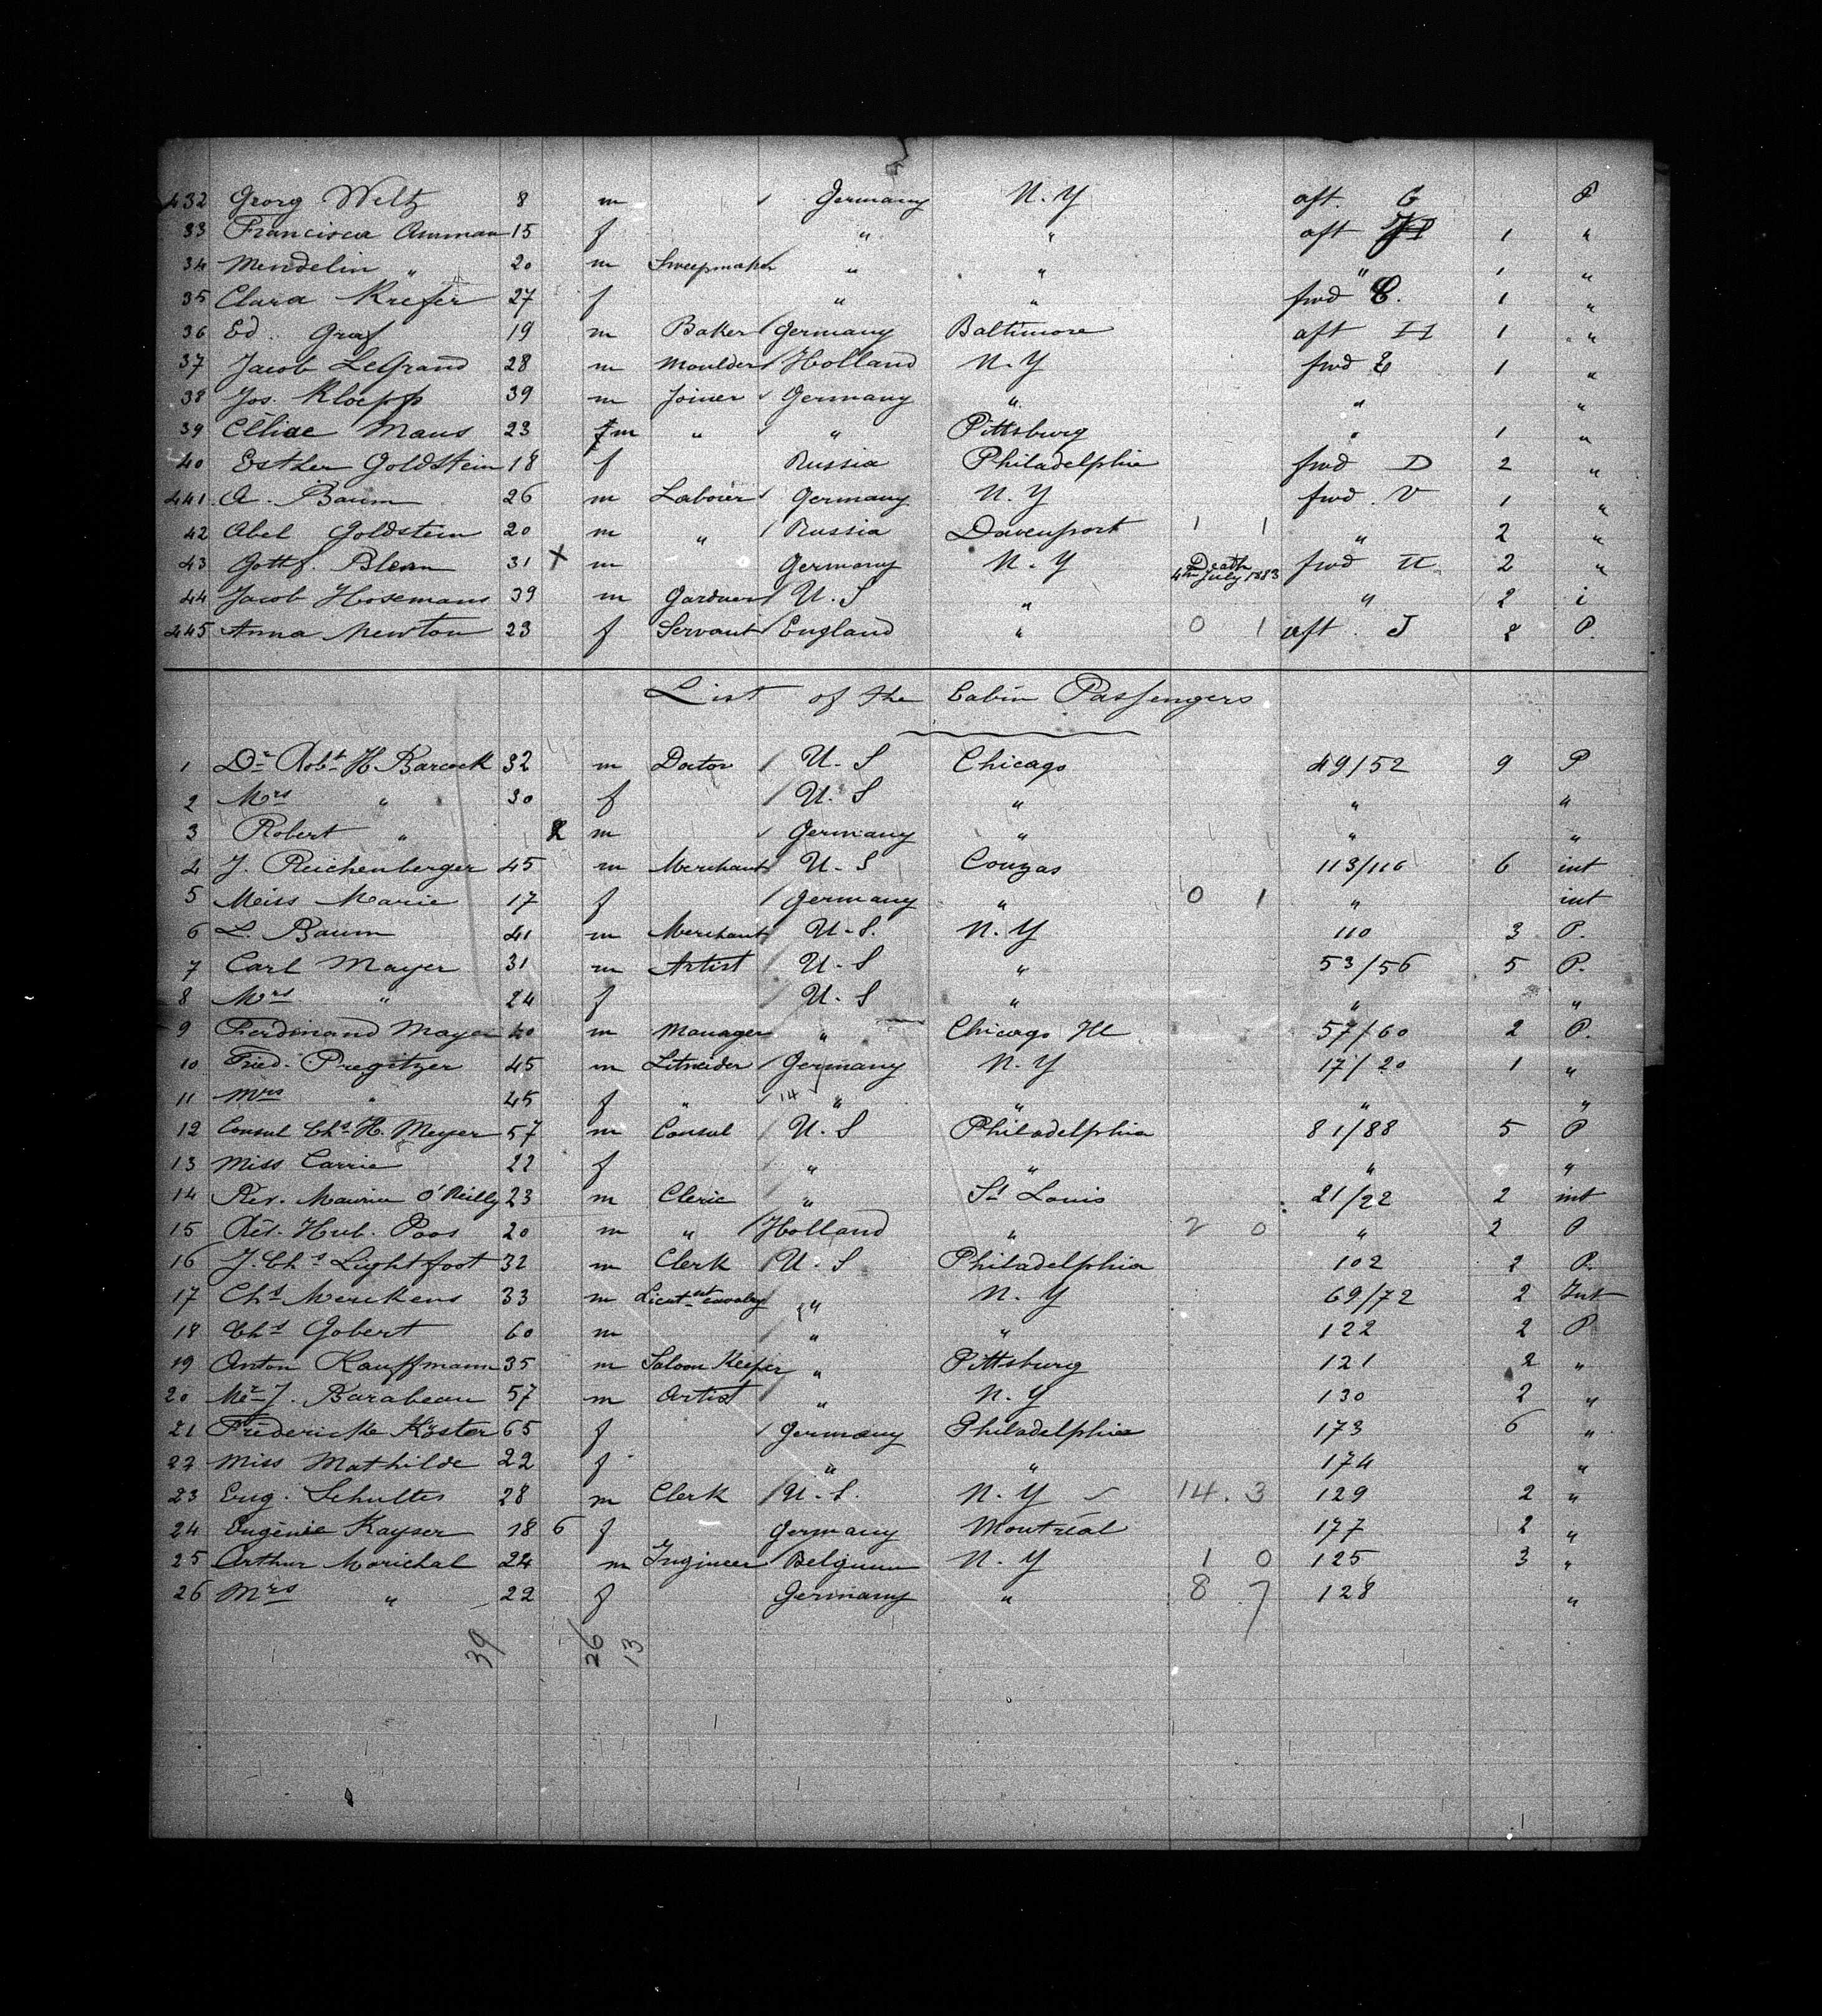 432 Georg Weltz 8 m Germany N.Y aft. G P
33 Francisca Amman 15 f " " aft 1 "
34 Mendelin " 20 m " " " 1 "
35 Clara Krefer 27 f " " fwd E. 1 "
36 Ed. Graf 19 m Baker Germany Baltimore aft H 1 "
37 Jacob LeGrand 28 m Moulder Holland N.Y fwd E 1 "
38 Jos. Kloepp 39 m Joiner Germany " " "
39 Maus 23 m " " Pittsburg " 1 "
40 Esther Goldstein 18 f Russia Philadelphia fwd D 2 "
441. A. Baum 26 m Labourer Germany N.Y fwd. V 1 "
42 Abel Goldstein 20 m " Russia Davenport 1 1 " 2 "
43 Gottf. Blean 31 X m Germany N.Y Death 4th July 1883 fwd U 2 "
44 Jacob Hosemans 39 m Gardner U.S " " 2 i
445 Anna Newton 23 f Servant England " 0 1 aft. J 2 P.
List of the Cabin Passengers
1 Dr Robt H. Barcock 32 m Doctor U.S Chicago 49/52 9 P
2 Mrs " 30 f U.S " " "
3 Robert " 2 m Germany " " "
4 J. Reichenberger 45 m Merchant U.S Couzas 113/116 6 int
5 Meiss Marie 17 f Germany " 0 1 " int
6 L. Baum 41 m Merchant U.S. N.Y 110 3 P.
7 Carl Mayer 31 m Artist U.S " 53/56 5 P.
8 Mrs " 24 f U.S " " "
9 Ferdinand Mayer 40 m Manager " Chicago Ill 57/60 2 P.
10 Fried. Pregitzer 45 m Germany N.Y 17/20 1 "
11 Mrs " 45 f " 14 " " " "
12 Consul Chs H. Meyer 57 m Consul U.S Philadelphia 81/88 5 P
13 Miss Carrie 22 f " " " "
14 Rev. Maurice O'Reilly 23 m Cleric " St Louis 21/22 2 int
15 Rev. Hub. Poos 20 m " Holland " 2 0 " 2 P
16 J. Chs Lightfoot 32 m Clerk U.S Philadelphia 102 2 P.
17 Chs Merckens 33 m Lieutnt cavalry " N.Y 69/72 2 Int
18 Chs Gobert 60 m " " 122 2 P
19 Anton Kauffmann 35 m Saloon Keeper " Pittsburg 121 2 "
20 Mr J. Barabeau 57 m Artist " N.Y 130 2 "
21 Fredericke Köster 65 f Germany Philadelphia 173 6 "
22 Miss Mathilde 22 f " " 174 "
23 Eug. Schultes 28 m Clerk U.S. N.Y 14.3 129 2 "
24 Eugénie Kayser 18 6 f Germany Montréal 177 2 "
25 Arthur Morichal 24 m Ingineer Belgium N.Y 1 0 125 3 "
26 Mrs " 22 f Germany " 8 7 128 "
39 26 13